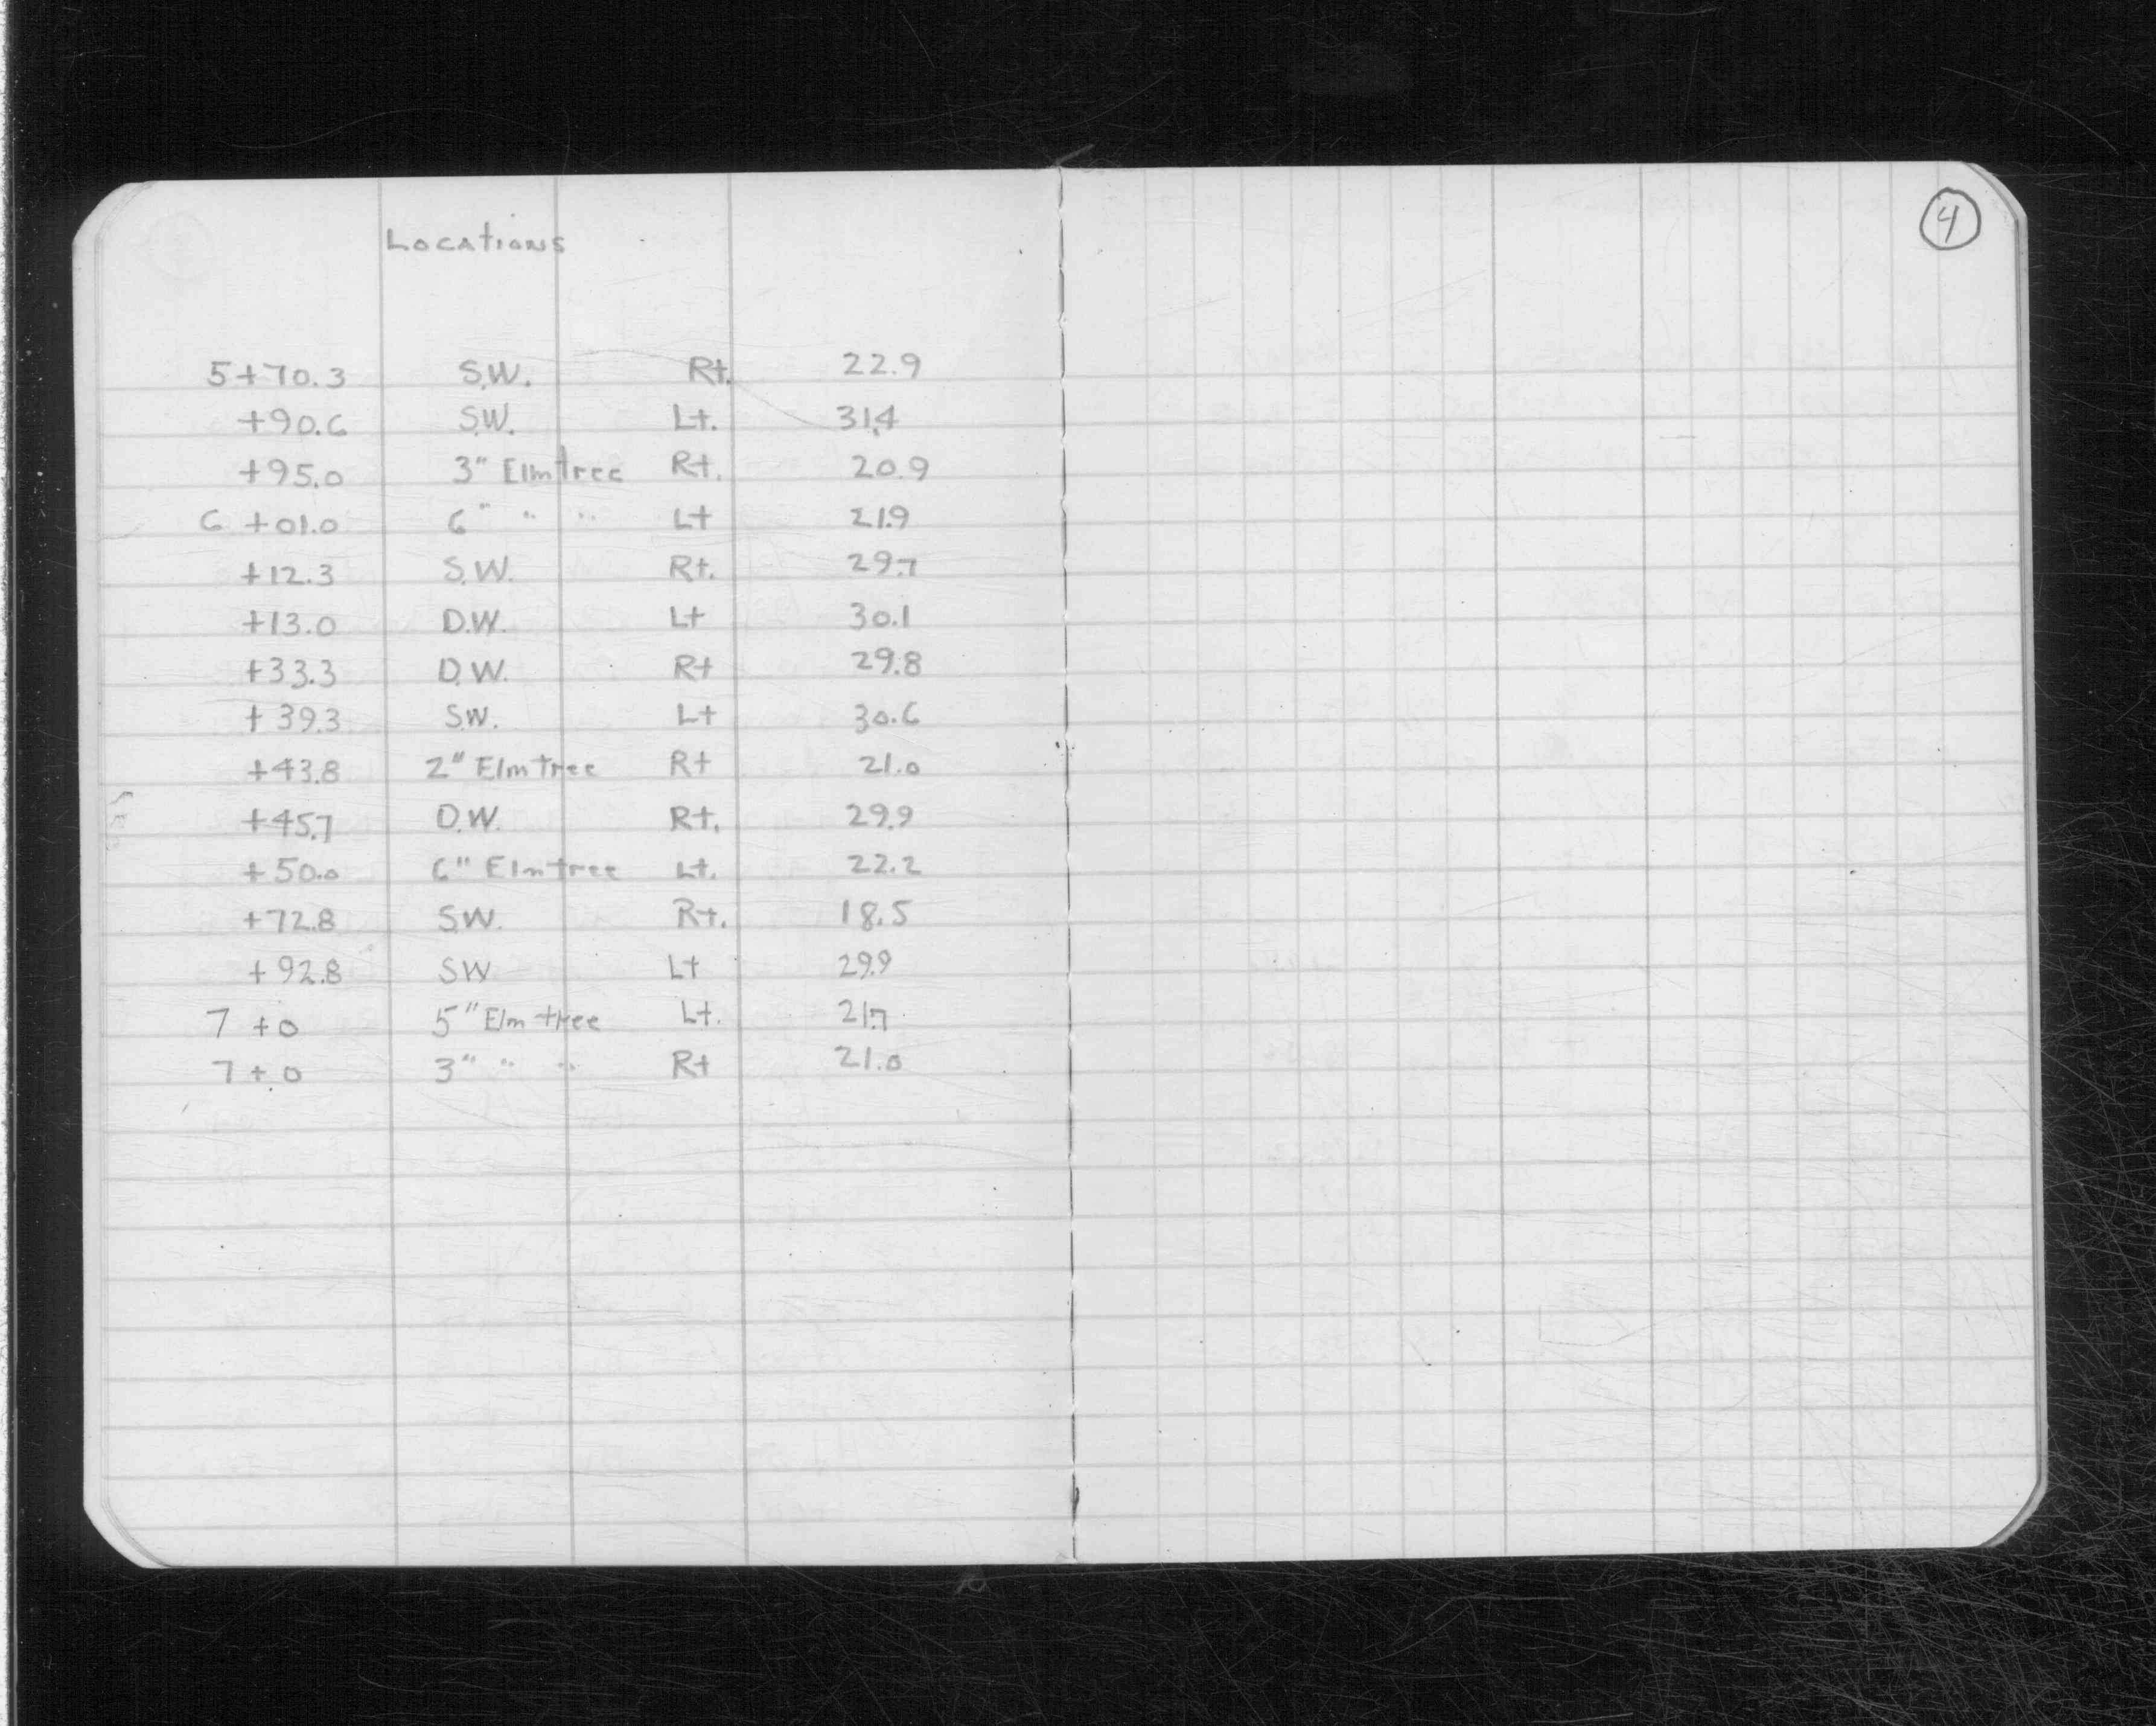 4
Locations
5+70.3 S.W. Rt. 22.9
+90.6 S.W. Lt. 31.4
+95.0 3" Elm tree Rt. 20.9
6 +01.0 6" " " Lt 21.9
+12.3 S.W. Rt. 29.7
+13.0 D.W. Lt 30.1
+33.3 D.W. Rt 29.8
+39.3 S.W. Lt 30.6
+43.8 2" Elm tree Rt 21.0
+45.7 D.W. Rt. 29.9
+50.0 6" Elm tree Lt. 22.2
+72.8 S.W. Rt. 18.5
+92.8 SW Lt 29.9
7 +0 5" Elm tree Lt. 21.7
7+0 3" " " Rt 21.0